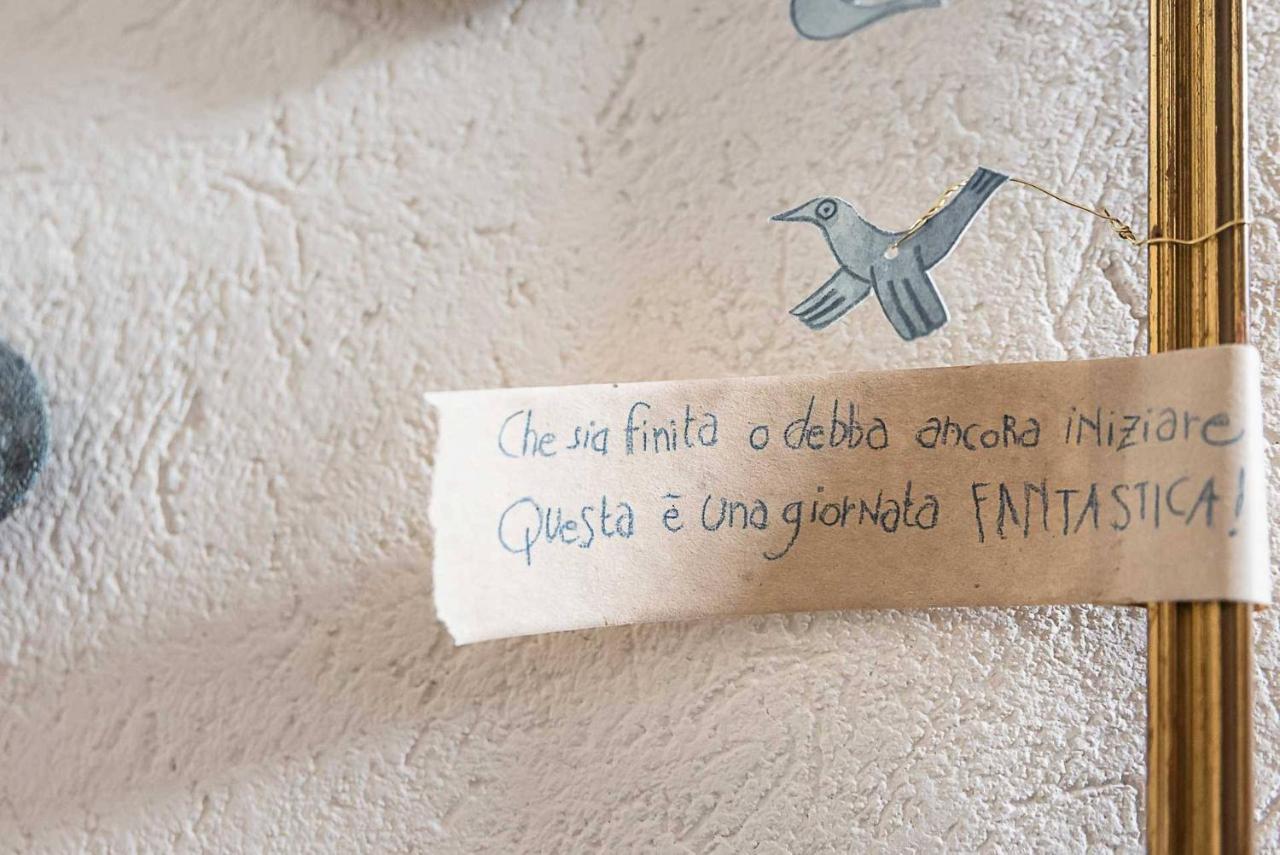 Che sia finita o debba ancora iniziare
Questa è una giornata FANTASTICA!